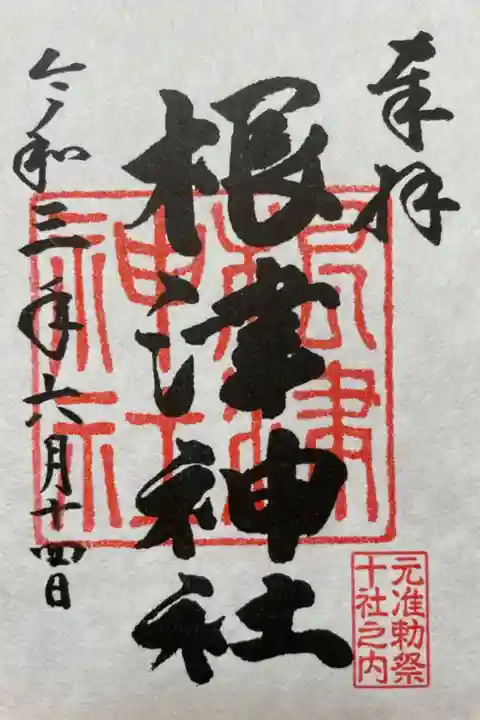 奉拝
根津神社
根津
神社
令和三年六月十四日
元准勅祭
十社之内